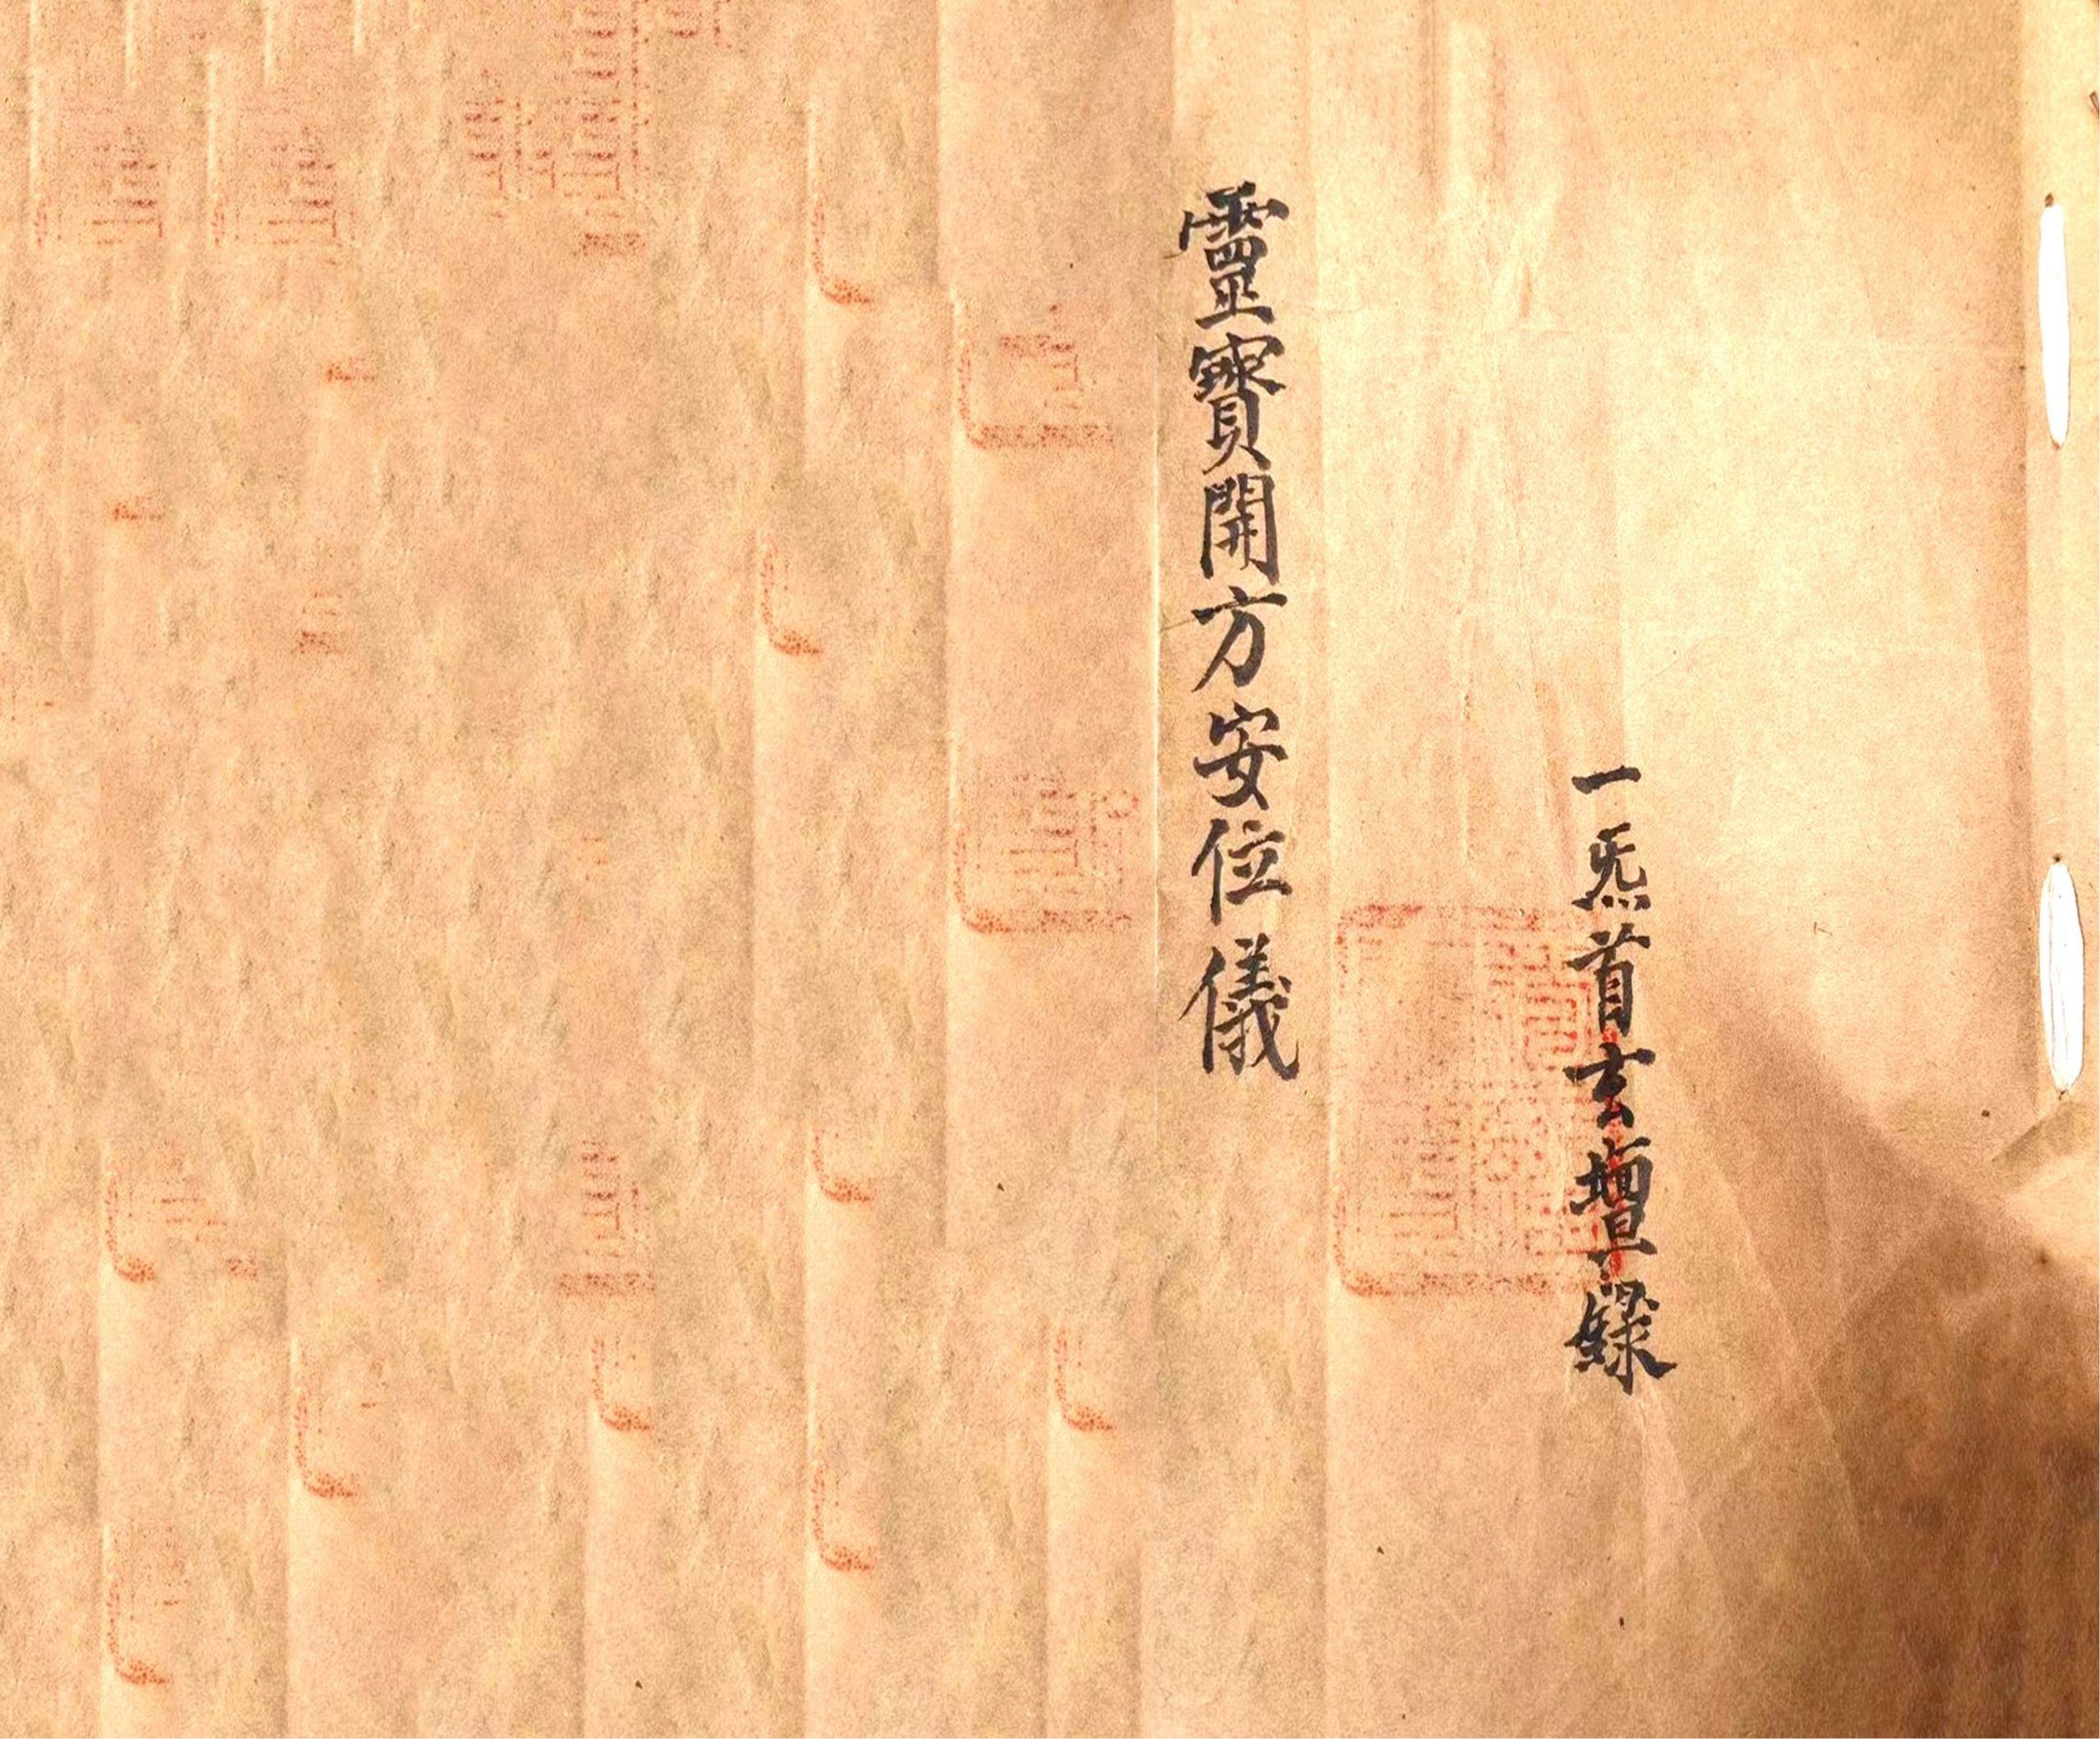 一炁首玄壇錄
靈寶開方安位儀